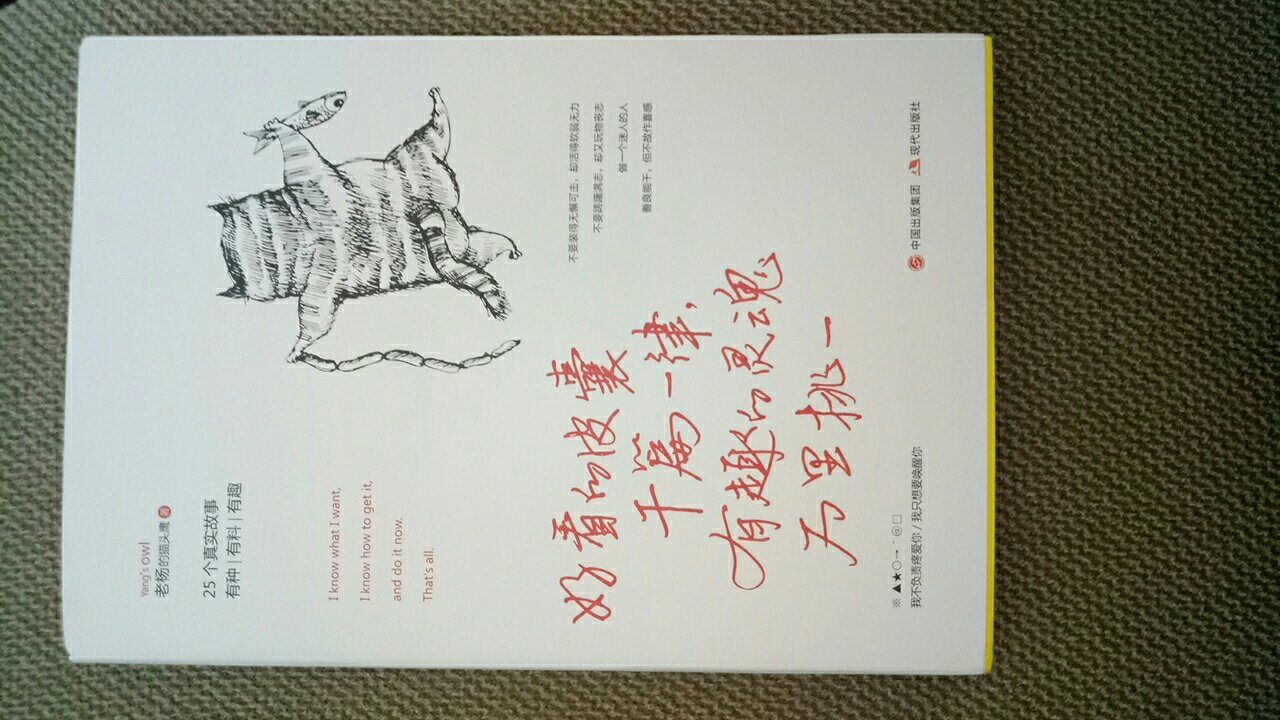 Yang's owl
老杨的猫头鹰 著
25 个真实故事
有种 | 有料 | 有趣
I know what I want,
I know how to get it,
and do it now.
That's all.
不要装得无懈可击，却活得软弱无力
不要踌躇满志，却又玩物丧志
做一个迷人的人
善良能干，但不故作喜感
好看的皮囊
千篇一律，
有趣的灵魂
万里挑一
※ ▲★○→ ˇ @□
我不负责疼爱你 / 我只想要唤醒你
中国出版集团 现代出版社